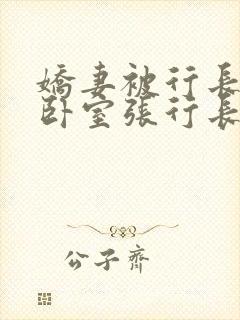 嬌妻被行長
卧室張行長
公子齊